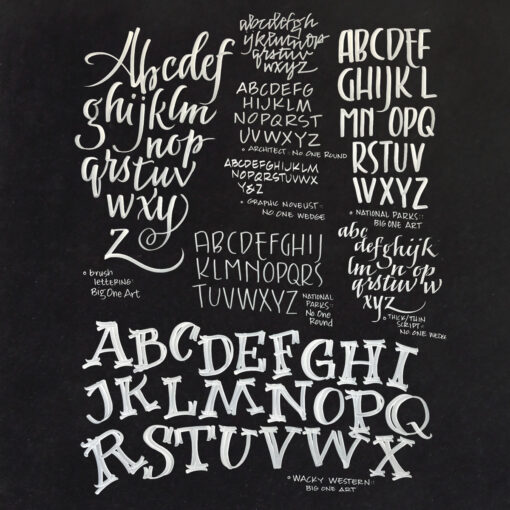 Abcdef
ghijklm
nop
qrstuv
wxy
z
° brush
lettering:
Big One Art
abcdefgh
ijklmnop
qrstuv
wxyz
ABCDEFG
HIJKLM
NOPQRST
UVWXYZ
° ARCHITECT: NO ONE ROUND
ABCDEFGHIJKLM
NOPQRSTUVWX
Y&Z
° GRAPHIC NOVELIST:
NO ONE WEDGE
ABCDEF
GHIJKL
MN OPQ
RSTUV
WXYZ
° NATIONAL PARKS::
BIG ONE ART
ABCDEFGHIJ
KLMNOPQRS
TUVWXYZ
NATIONAL
PARKS:
No One
Round
abc
defghijk
lm nop
qrstuvw
xyz
° THICK/THIN
SCRIPT:
NO ONE WEDGE
ABCDEFGHI
JKLMNOPQ
RSTUVWX
° WACKY WESTERN::
BIG ONE ART